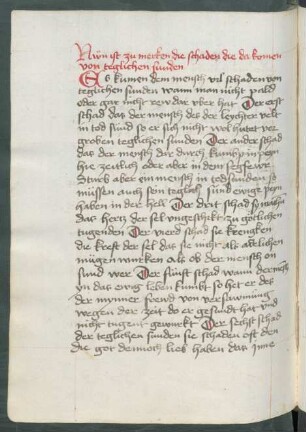 Nun ist zu mercken die schaden die da komen
von teglichen sunden
Es kumen dem mensch vil schaden von
teglichen sunden wann man nicht pald
oder gar nicht rew dar vber hat Der erst
schad das der mensch des der leychter velt
in tod sund so er sich nicht wol hutet vor
groben teglichen sunden Der ander schad
das der mensch dar durch kumpt in peyn
hie zeitlich oder aber in dem fegfewr
Sturb aber ein mensch in todsunden so
müssen auch sein teglich sund ewige peyn
haben in der hell Der drit schad so machen
das hertz der sel vngeschickt zu götlichen
tugenden Der vierd schad sie krencken
die kreft der sel das sie nicht als
mügen wurcken als ob der mensch on
sund wer Der fünft schad wann der mensch
yn das ewig leben kumbt so het er des
der mynner frewd von versawmung
wegen der zeit do er gesundt hat vnd
nicht tugent gewurckt Der sechst schad
der teglichen sunden sie schaden oft den
die got dennoch lieb haben das inne